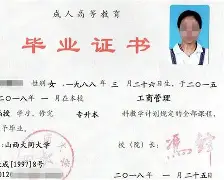 成人高等教育
毕业证书
性别 女 ,一九八八年 三 月二十六日生,于二〇一五
二〇一八年 一 月在本校 工商管理
函授 学习,修完 专升本 科教学计划规定的全部课程,
毕业。
山西大同大学 校(院)长:
成[1997]8号
012 二〇一八年一